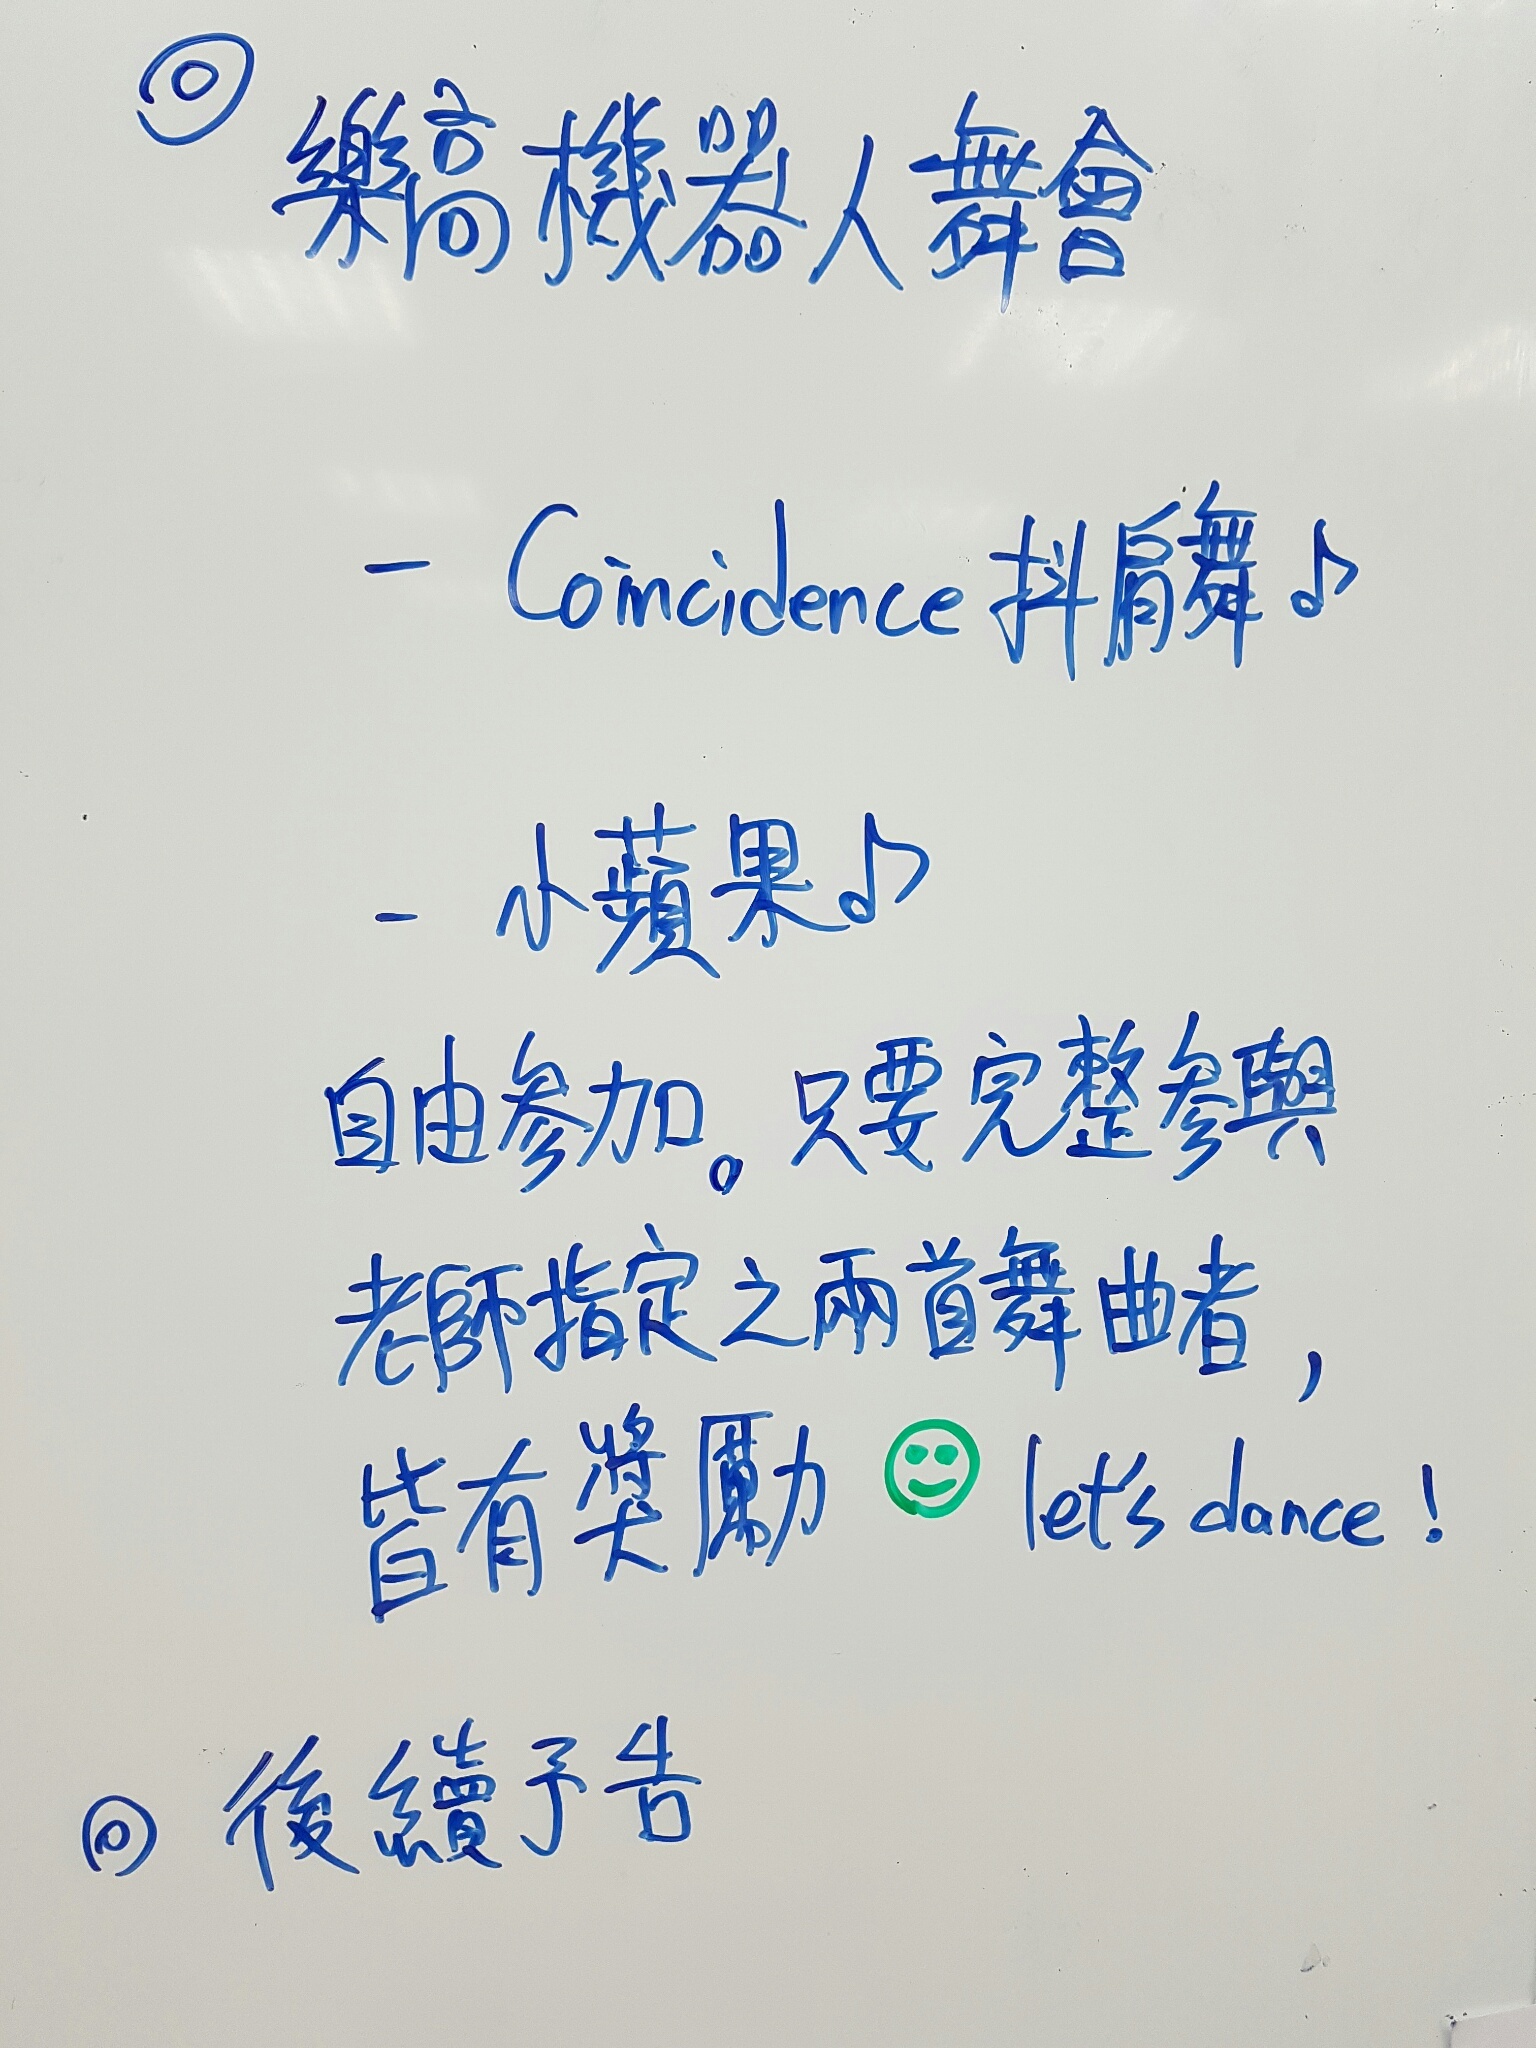 ◎ 樂高機器人舞會
- Coincidence 抖肩舞♪
- 小蘋果♪
自由參加。只要完整參與
老師指定之兩首舞曲者，
皆有獎勵 let's dance!
◎ 後續予告